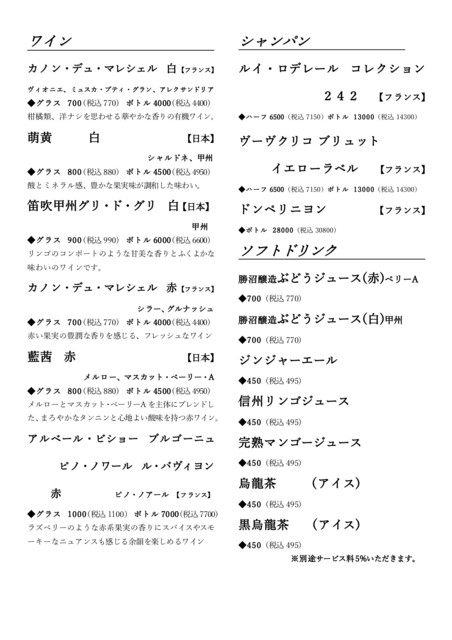 ワイン
カノン・デュ・マレシェル 白【フランス】
ヴィオニエ、ミュスカ・プティ・グラン、アレクサンドリア
◆グラス 700(税込770) ボトル4000(税込4400)
柑橘類、洋ナシを思わせる華やかな香りの有機ワイン。
萌黄 白 【日本】
シャルドネ、甲州
◆グラス 800(税込880) ボトル4500(税込4950)
酸とミネラル感、豊かな果実味が調和した味わい。
笛吹甲州グリ・ド・グリ 白【日本】
甲州
◆グラス 900(税込990) ボトル6000(税込6600)
リンゴのコンポートのような甘美な香りとふくよかな
味わいのワインです。
カノン・デュ・マレシェル 赤【フランス】
シラー、グルナッシュ
◆グラス 700(税込770) ボトル4000(税込4400)
赤い果実の豊潤な香りを感じる、フレッシュなワイン
藍茜 赤 【日本】
メルロー、マスカット・ベーリー・A
◆グラス 800(税込880) ボトル4500(税込4950)
メルローとマスカット・ベーリーAを主体にブレンドし
た、まろやかなタンニンと心地よい酸味を持つ赤ワイン。
アルベール・ビショー ブルゴーニュ
ピノ・ノワール ル・パヴィヨン
赤 ピノ・ノアール【フランス】
◆グラス 1000(税込1100) ボトル7000(税込7700)
ラズベリーのような赤系果実の香りにスパイスやスモ
ーキーなニュアンスも感じる余韻を楽しめるワイン
シャンパン
ルイ・ロデレール コレクション
242 【フランス】
◆ハーフ6500(税込7150) ボトル 13000(税込14300)
ヴーヴクリコ ブリュット
イエローラベル 【フランス】
◆ハーフ6500(税込7150) ボトル 13000(税込14300)
ドンペリニヨン 【フランス】
◆ボトル 28000(税込30800)
ソフトドリンク
勝沼醸造ぶどうジュース(赤)ベリーA
◆700(税込770)
勝沼醸造ぶどうジュース(白)甲州
◆700(税込770)
ジンジャーエール
◆450(税込495)
信州リンゴジュース
◆450(税込495)
完熟マンゴージュース
◆450(税込495)
烏龍茶 (アイス)
◆450(税込495)
黒烏龍茶 (アイス)
◆450(税込495)
※別途サービス料5%いただきます。